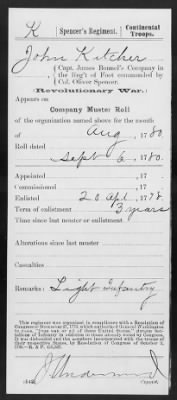 K Spencer's Regiment. Continental Troops.
John Kitcher
Capt. James Bonnel's Company in
the Reg't of Foot commanded by
Col. Oliver Spencer.
Revolutionary War.
Appears on
Company Muster Roll
of the organization named above for the month
of Aug, 1780.
Roll dated
Sept 6, 1780.
Appointed , 17
Commissioned , 17
Enlisted 20 Apl, 1778.
Term of enlistment 3 years
Time since last muster or enlistment
Alterations since last muster
Casualties
Remarks: Light Infantry
This regiment was organized in compliance with a Resolution of
Congress of December 27, 1776
J Underwood
Copyist.